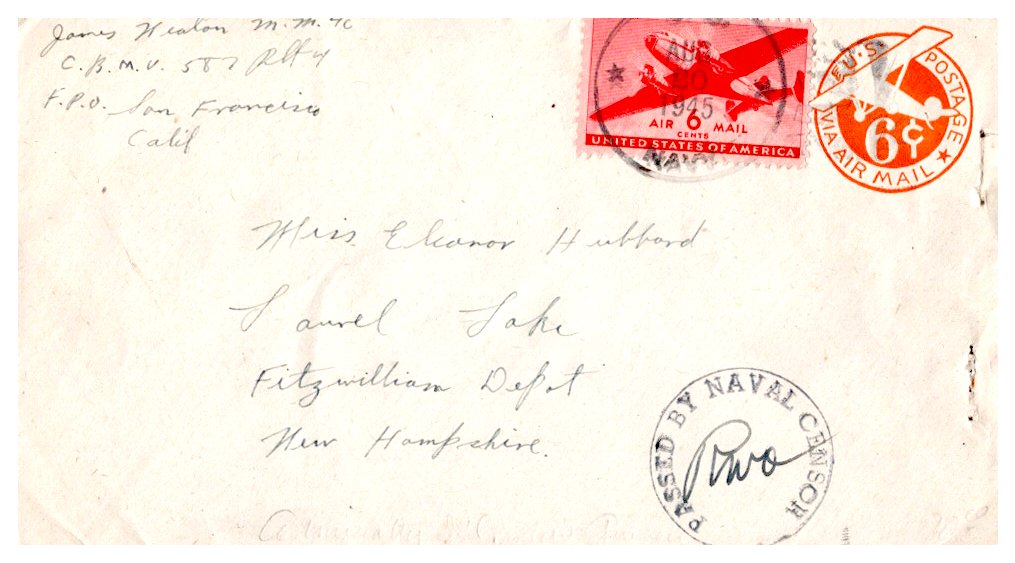 James
C.B.M.U. 587 Plt 4
F.P.O. San Francisco
Calif
AUG
1945
NAVY
AIR 6 MAIL
CENTS
UNITED STATES OF AMERICA
U.S. POSTAGE
6¢
VIA AIR MAIL
Miss. Eleanor Hubbard
Laurel Lake
Fitzwilliam Depot
New Hampshire.
PASSED BY NAVAL CENSOR
RWO